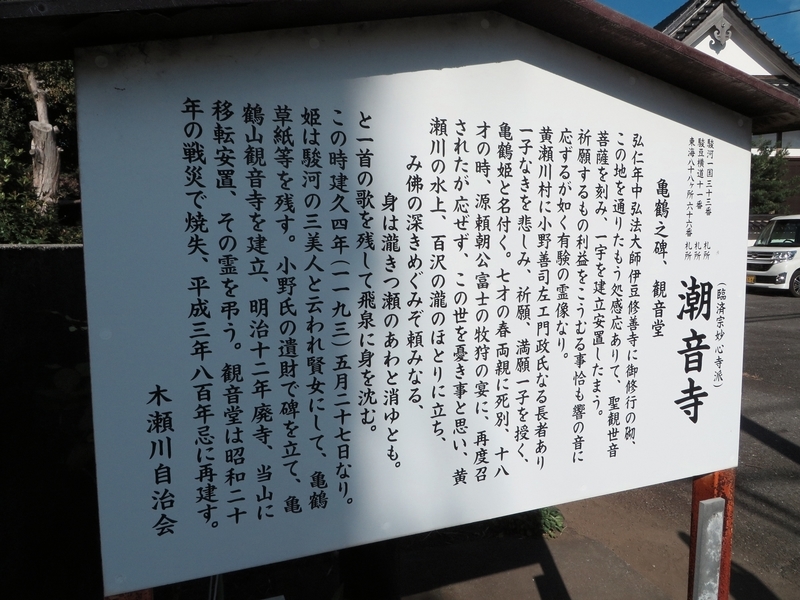 (臨済宗妙心寺派)
潮音寺
駿河一国三十三番 札所
駿豆横道十一番 札所
東海八十八ヶ所六十六番 札所
亀鶴之碑、観音堂
弘仁年中弘法大師伊豆修善寺に御修行の砌、
この地を通りたもう処感応ありて、聖観世音
菩薩を刻み、一宇を建立安置したまう。
祈願するもの利益をこうむる事恰も響の音に
応ずるが如く有験の霊像なり。
黄瀬川村に小野善司左エ門政氏なる長者あり
一子なきを悲しみ、祈願、満願一子を授く、
亀鶴姫と名付く。七才の春両親に死別、十八
才の時、源頼朝公富士の牧狩の宴に、再度召
されたが応せず、この世を憂き事と思い、黄
瀬川の水上、百沢の瀧のほとりに立ち、
み佛の深きめぐみぞ頼みなる、
身は瀧きつ瀬のあわと消ゆとも。
と一首の歌を残して飛泉に身を沈む。
この時建久四年(一一九三)五月二十七日なり。
姫は駿河の三美人と云われ賢女にして、亀鶴
草紙等を残す。小野氏の遺財で碑を立て、亀
鶴山観音寺を建立、明治十二年廃寺、当山に
移転安置、その霊を弔う。観音堂は昭和二十
年の戦災で焼失、平成三年八百年忌に再建す。
木瀬川自治会